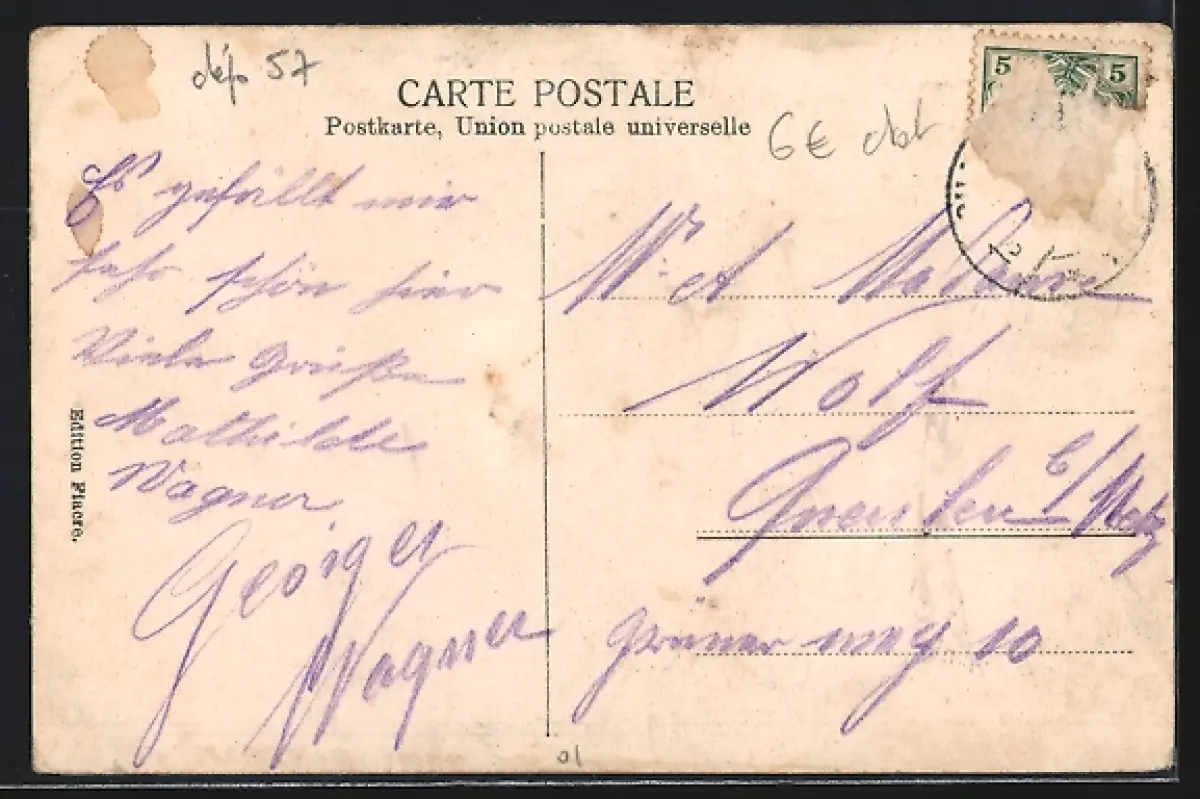 dép 57
CARTE POSTALE
Postkarte, Union postale universelle
6€
5 5
Es gefällt mir
sehr schön hier
Viele Grüße
Mathilde
Wagner
Georges
Wagner
Edition Fiacre.
Mr et Madame
Wolf
Queuleu b/ Metz
Grüner weg 10
01